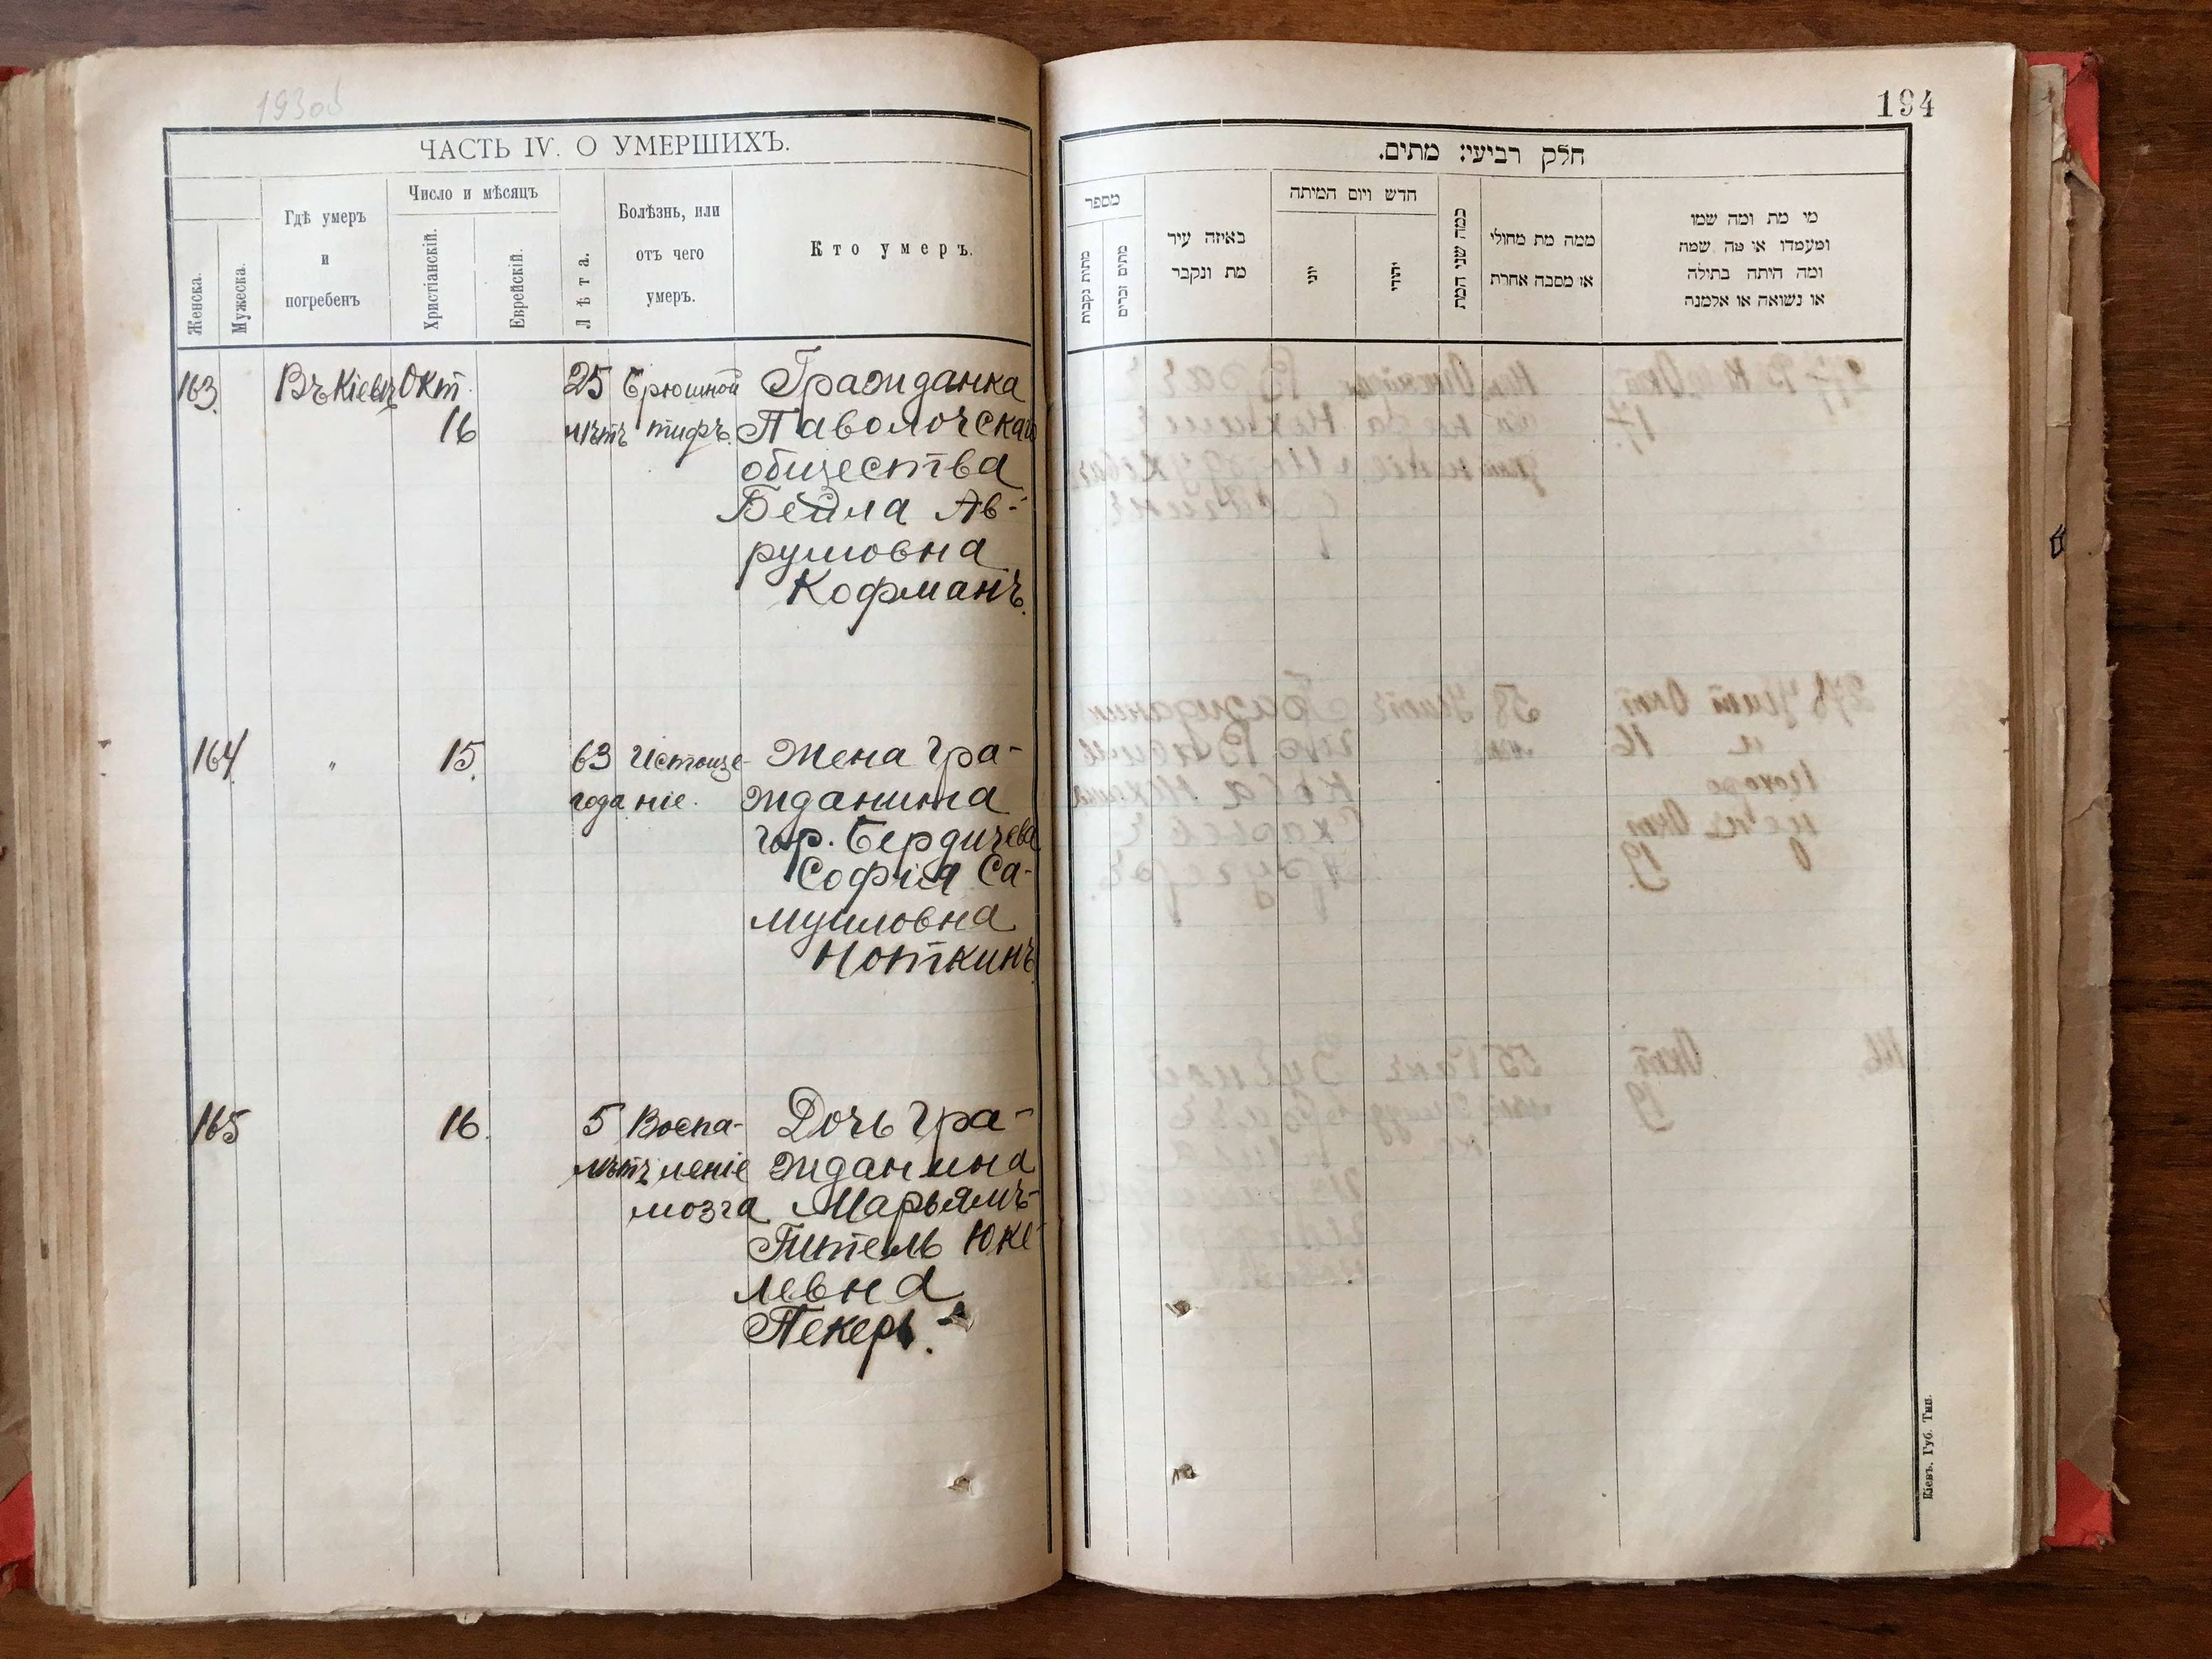 193об
ЧАСТЬ IV. О УМЕРШИХЪ.
Женска.
Мужеска.
Гдѣ умеръ
и
погребенъ
Число и мѣсяцъ
Христіанскій.
Еврейскій.
Лѣта.
Болѣзнь, или
отъ чего
умеръ.
Кто умеръ.
163. Въ Кіевѣ Окт. 25 Брюшной Гражданка
16 лѣтъ тифъ. Паволочскаго
общества
Бейла Ав-
румовна
Кофманъ.
164 " 15. 63 Истоще- Жена гра-
года ніе. жданина
гор. Бердичева
Софія Са-
муиловна
Ноткинъ.
165 16. 5 Воспа- Дочь гра-
лѣтъ леніе жданина
мозга Марьямъ-
Гитель Юке-
левна
Пекеръ.
194
חלק רביעי: מתים.
מספר
מתות נקבות
מתים זכרים
באיזה עיר
מת ונקבר
חדש ויום המיתה
יוני
יהודי
כמה שני המת
ממה מת מחולי
או מסבה אחרת
מי מת ומה שמו
ומעמדו או מה שמה
ומה היתה בתילה
או נשואה או אלמנה
Кіевъ, Губ. Тип.